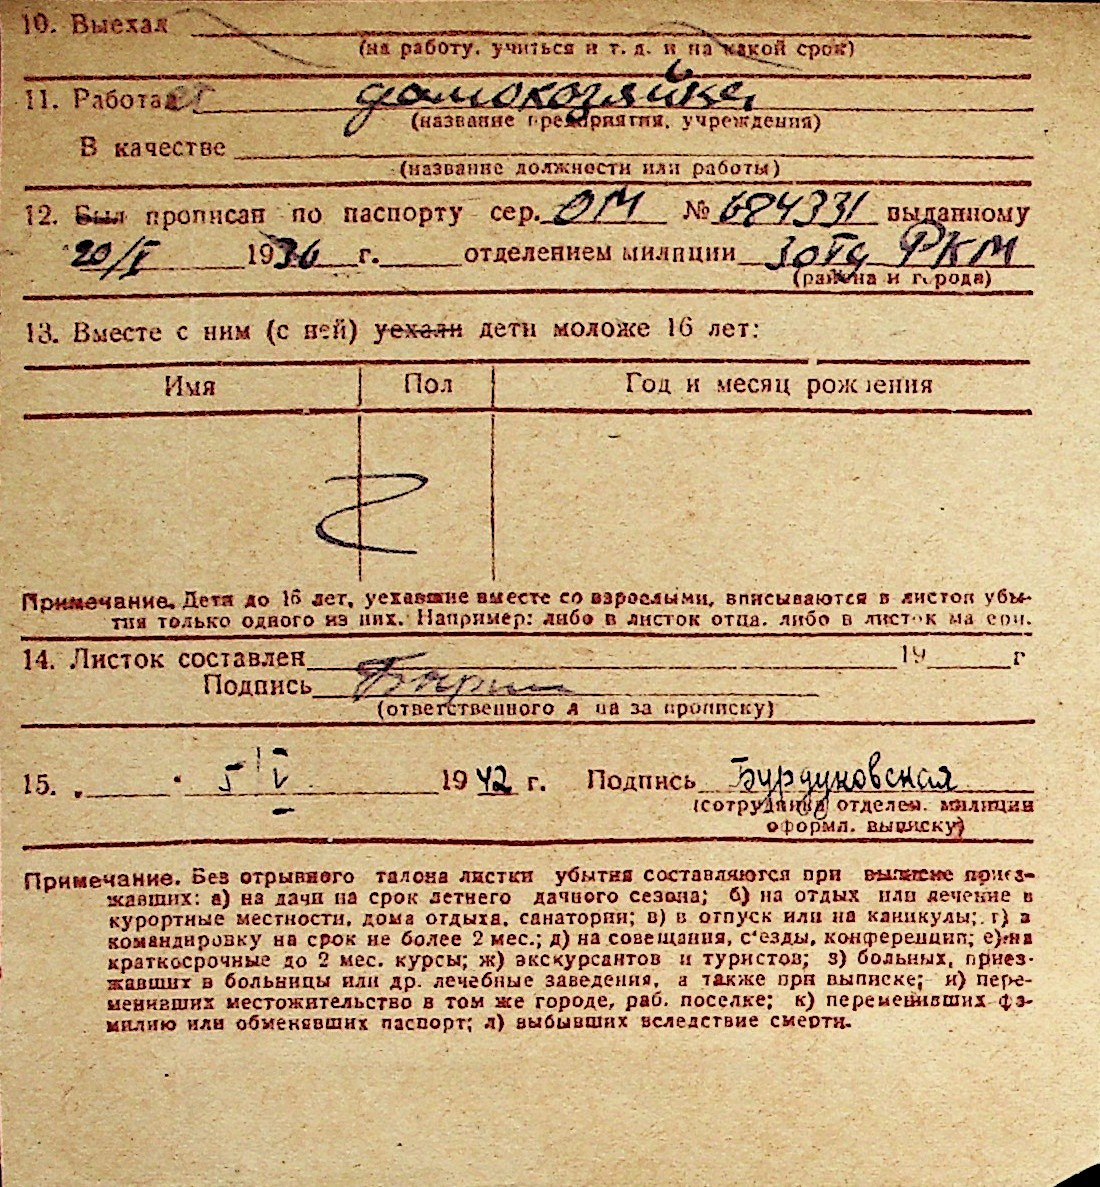 10. Выехал
(на работу, учиться и т. д. и на какой срок)
11. Работает домохозяйка
(название предприятия, учреждения)
В качестве
(название должности или работы)
12. Был прописан по паспорту сер. ОМ № 684331 выданному
20/I 1936 г. отделением милиции 3 ото РКМ
(района и города)
13. Вместе с ним (с ней) уехали дети моложе 16 лет:
Имя Пол Год и месяц рождения
Примечание. Дети до 16 лет, уехавшие вместе со взрослыми, вписываются в листок убы-
тия только одного из них. Например: либо в листок отца, либо в листок матери.
14. Листок составлен 19 г
Подпись
(ответственного лица за прописку)
15. 5/V 1942 г. Подпись Бурдуковская
(сотрудника отделен. милиции
оформл. выписку)
Примечание. Без отрывного талона листки убытия составляются при выписке приез-
жавших: а) на дачи на срок летнего дачного сезона; б) на отдых или лечение в
курортные местности, дома отдыха, санатории; в) в отпуск или на каникулы; г) в
командировку на срок не более 2 мес.; д) на совещания, с'езды, конференции; е) на
краткосрочные до 2 мес. курсы; ж) экскурсантов и туристов; з) больных, приез-
жавших в больницы или др. лечебные заведения, а также при выписке; и) пере-
менивших местожительство в том же городе, раб. поселке; к) переменивших фа-
милию или обменявших паспорт; л) выбывших вследствие смерти.